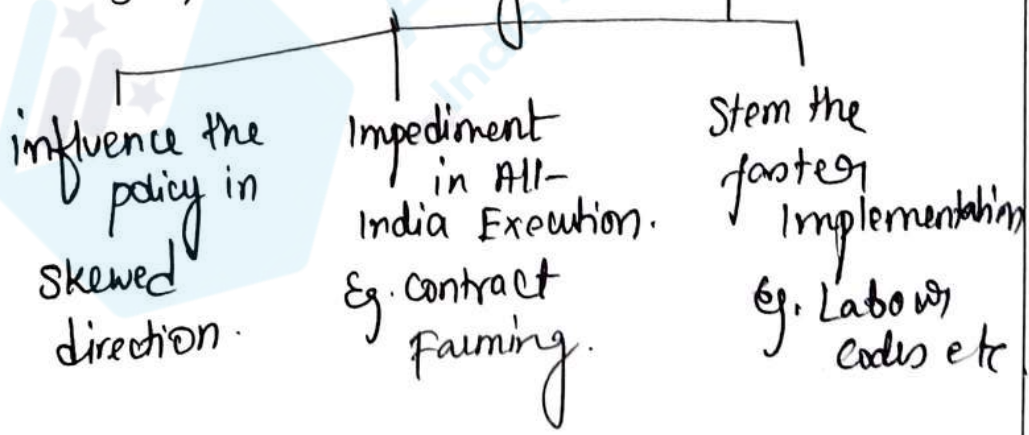 influence the
policy in
skewed
direction.
Impediment
in All-
India Execution.
Eg. Contract
Farming.
Stem the
faster
Implementation
Eg. Labour
Codes etc